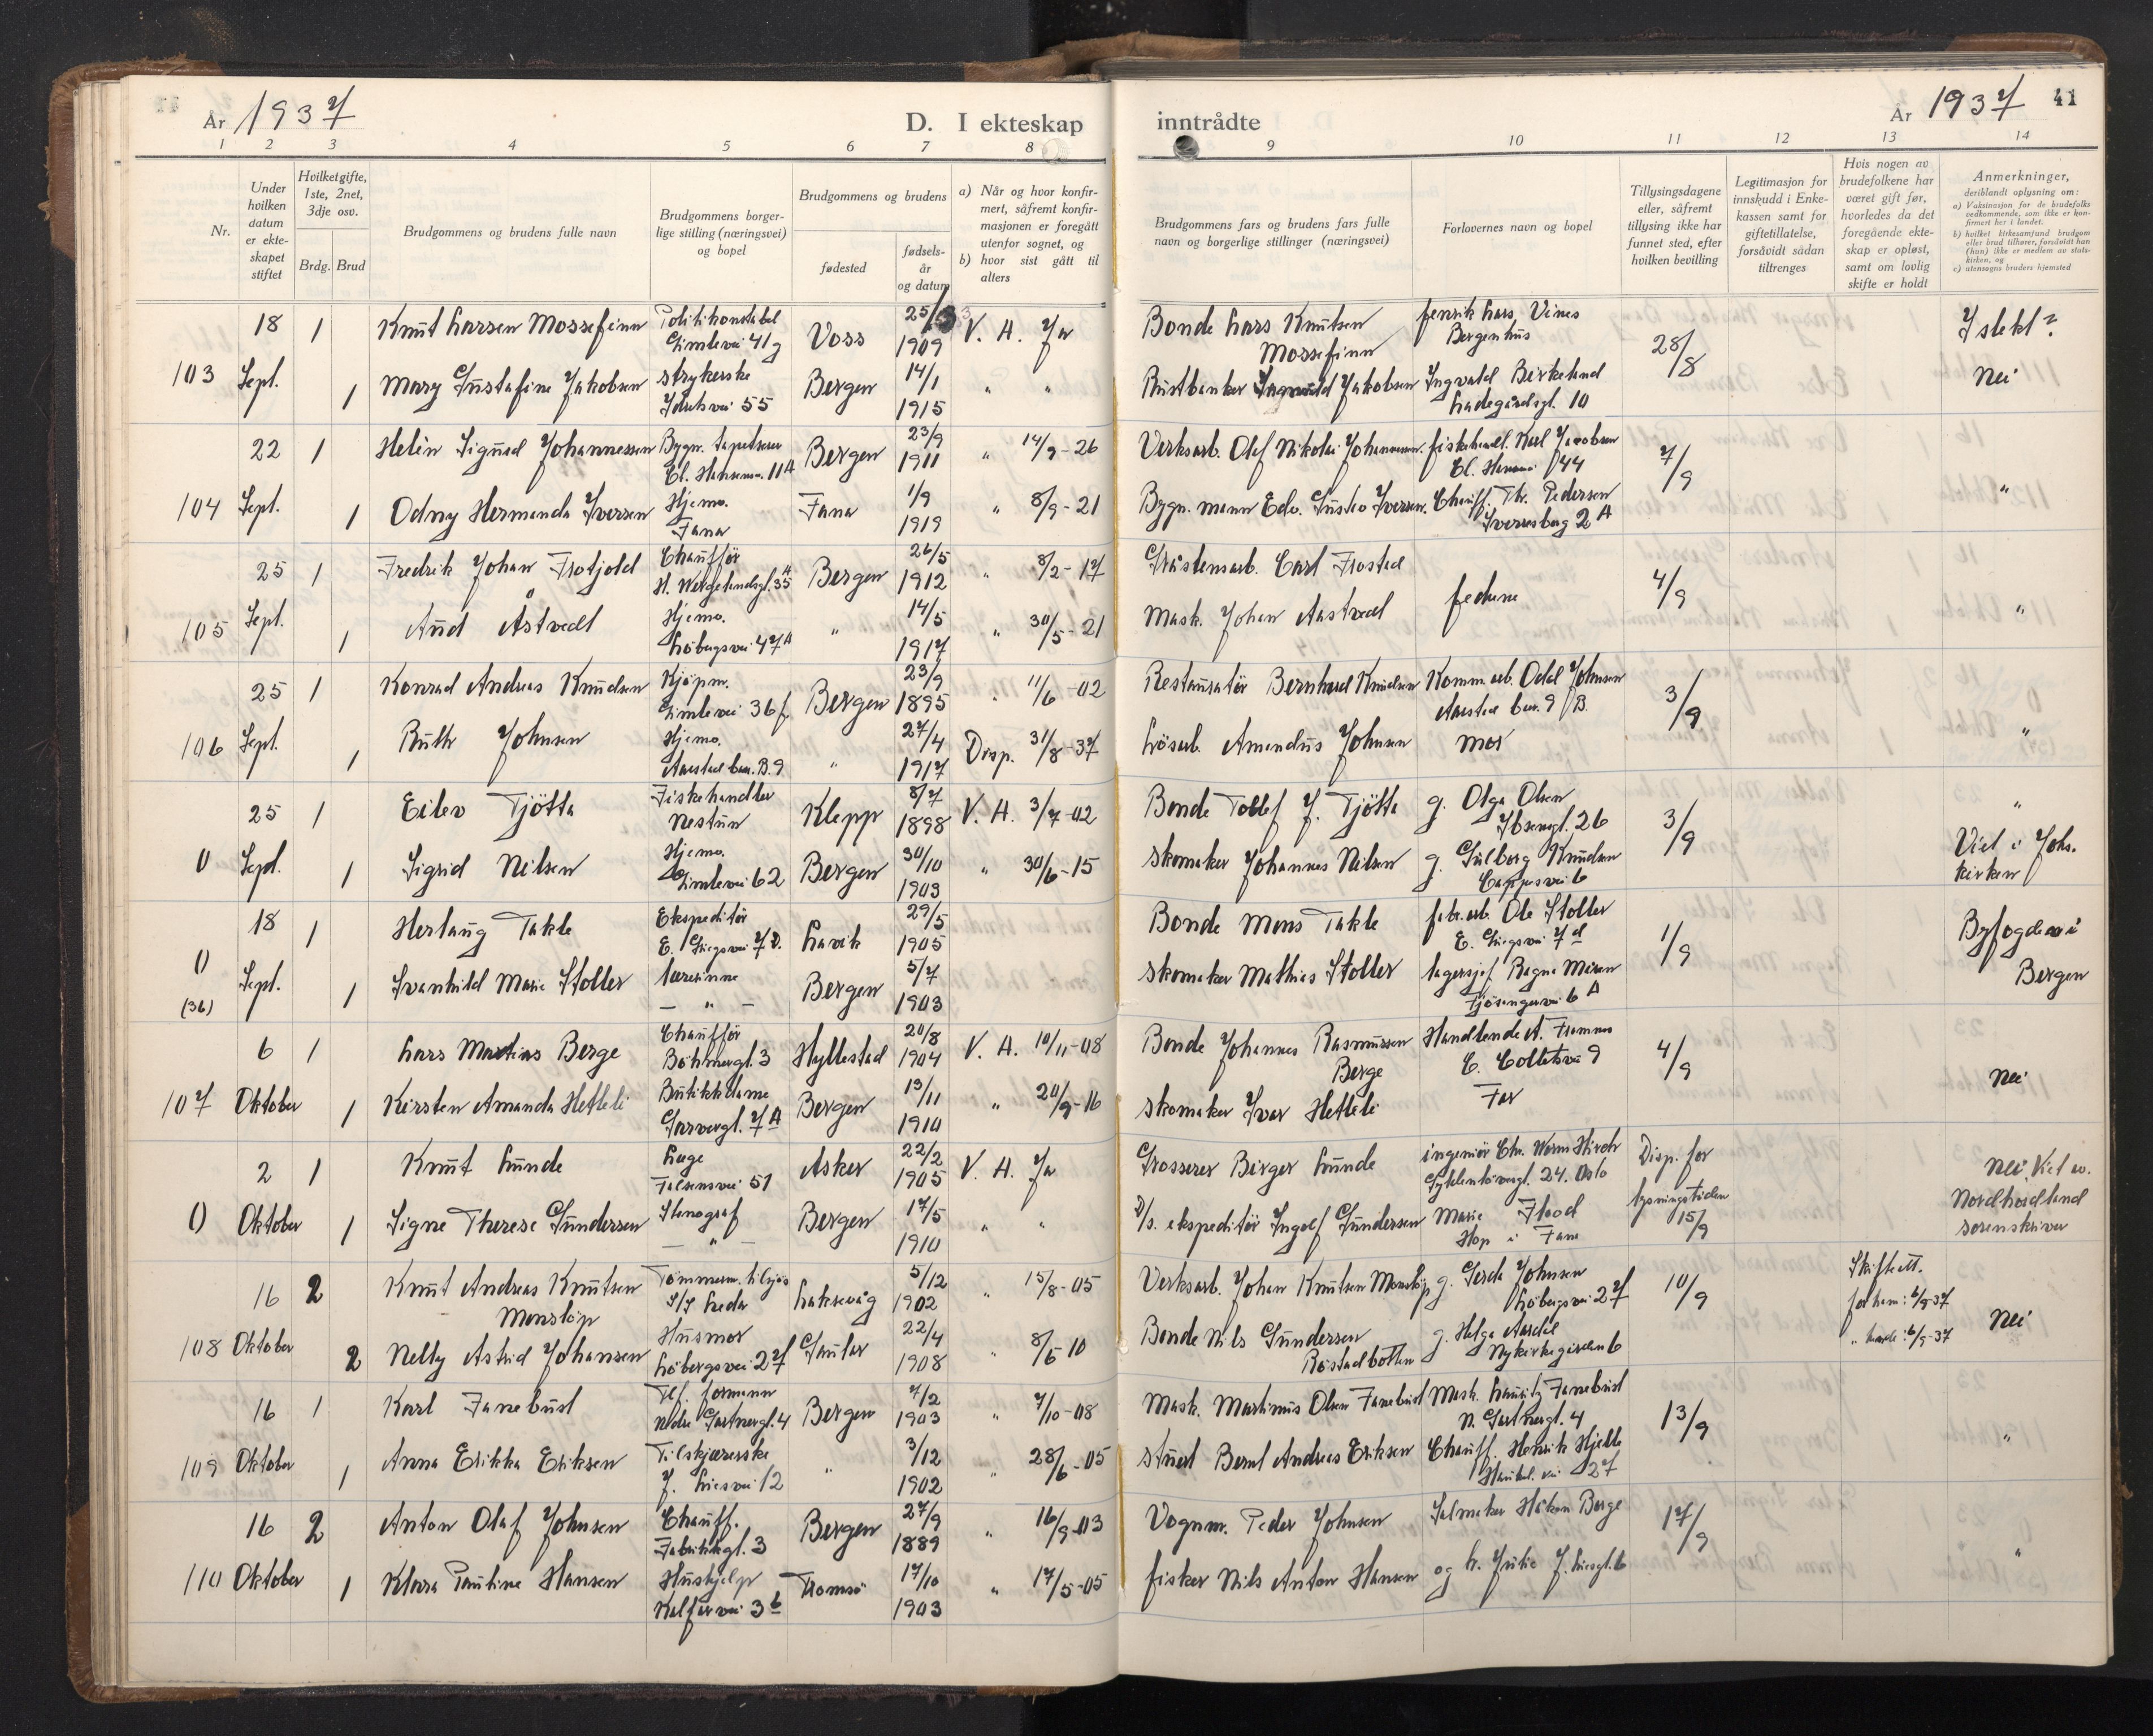 År 1937
D. I ekteskap
inntrådte
År 1937 41
1 2 3 4 5 6 7 8 9 10 11 12 13 14
Nr.
Under hvilken datum er ekteskapet stiftet
Hvilketgifte, 1ste, 2net, 3dje osv.
Brdg. Brud
Brudgommens og brudens fulle navn
Brudgommens borgerlige stilling (næringsvei) og bopel
Brudgommens og brudens
fødested
fødselsår og datum
a) Når og hvor konfirmert, såfremt konfirmasjonen er foregått utenfor sognet, og
b) hvor sist gått til alters
Brudgommens fars og brudens fars fulle navn og borgerlige stillinger (næringsvei)
Forlovernes navn og bopel
Tillysingsdagene eller, såfremt tillysing ikke har funnet sted, efter hvilken bevilling
Legitimasjon for innskudd i Enkekassen samt for giftetillatelse, forsåvidt sådan tiltrenges
Hvis nogen av brudefolkene har været gift før, hvorledes da det foregående ekteskap er opløst, samt om lovlig skifte er holdt
Anmerkninger,
deriblandt oplysning om:
a) Vaksinasjon for de brudefolks vedkommende, som ikke er konfirmert her i landet.
b) hvilket kirkesamfund brudgom eller brud tilhører, forsåvidt han (hun) ikke er medlem av statskirken, og
c) utensogns bruders hjemsted
18 1 Knut Larsen Mossefinn Politikonstabel Gimlevei 41g Voss 25/3 1909 V. H. Ja Bonde Lars Knutsen Mossefinn fenrik Lars Vines Bergenhus 28/8 I slekt?
103 Sept. 1 Mary Gustafine Jakobsen strykerske Idrettsvei 55 Bergen 14/1 1915 " " Rustbanker Jakobsen Ingvald Birkeland Ladegårdsgt. 10 Nei
22 1 Helén Sigurd Johannessen Bygn. tapetserer 11A Bergen 23/9 1911 " 14/9-26 Verksarb. Olaf Nikolai Johannessen. fiskehandl. Karl Jacobsen 44 7/9
104 Sept. 1 Odny Hermanda Iversen Hjemv. Fana Fana 1/9 1919 " 8/9-21 Bygn. mann Edv. Gustav Iversen. Chauff. Th. Pedersen Sverresborg 2A "
25 1 Fredrik Johan Frotjold Chauffør H. Wergelandsgt. 35A Bergen 26/5 1912 " 8/2-17 Gråstensarb. Carl Frostad fedrene 4/9
105 Sept. 1 Aud Åstvedt Hjemv. Løbergsvei 47A " 14/5 1917 " 30/5-21 Mask. Johan Aastvedt "
25 1 Konrad Andreas Knudsen Kjøpm. Gimlevei 36f Bergen 23/9 1895 " 11/6-02 Restauratør Bernhard Knudsen Komm.arb. Odd Johnsen Aarstad bar. 9 B. 3/9
106 Sept. 1 Ruth Johnsen Hjemv. Aarstad bar. B.9 " 27/4 1917 Disp. 31/8-37 Løsarb. Amandus Johnsen Mor "
25 1 Eilev Tjøtta Fiskehandler Nestun Klepp 8/7 1898 V. H. 3/7-02 Bonde Tollef J. Tjøtta g. Olga Olsen Ibsensgt. 26 3/9 "
0 Sept. 1 Sigrid Nilsen Hjemv. Gimlevei 62 Bergen 30/10 1903 " 30/6-15 skomaker Johannes Nilsen g. Gulborg Knudsen Cappesvei 6 Viet i Johs. kirken
18 1 Herlaug Takle Ekspeditør E. Griegsvei 7d. Lavik 29/5 1905 Bonde Mons Takle fabr.arb. Ole Stoller E. Griegsvei 7d 1/9 Byfogden i Bergen
0 (36) Sept. 1 Svanhild Marie Stoller lærerinne — " — Bergen 5/7 1903 skomaker Mathias Stoller lagersjef Ragna Meisen Fjøsangervei 6A
6 1 Lars Martias Berge Chauffør Bøhmergt. 3 Hyllestad 20/8 1904 V. H. 10/11-08 Bonde Johannes Rasmussen Berge Handlende A. Framnes C. Collettsvei 9 4/9
107 Oktober 1 Kirsten Amanda Hetleli Butikkdame Garvergt. 7A Bergen 13/11 1910 " 20/9-16 skomaker Ivar Hetleli Far Nei
2 1 Knut Lunde Læge Falsensvei 51 Asker 22/2 1905 V. H. Ja Grosserer Birger Lunde ingeniør Chr. Worm Hirsch Gyldenløvesgt. 24. Oslo Disp. for lysningstiden 15/9 Nei Viet v. Nordhordland sorenskriver
0 Oktober 1 Signe Therese Gundersen Stenograf — " — Bergen 17/5 1910 " " D/s. ekspeditør Ingolf Gundersen Marie Flood Hop i Fana
16 2 Knut Andreas Knutsen Monsløp Tømmerm. tilsjøs S/S Leda Laksevåg 5/12 1902 " 15/8-05 Verksarb. Johan Knutsen Monsløp g. Gerda Johnsen Løbergsvei 27 10/9 Skifteatt. for ham: 6/9-37
108 Oktober 2 Nelly Astrid Johansen Husmor Løbergsvei 27 Gaular 22/4 1908 " 8/5 10 Bonde Nils Gundersen Røstadbotten g. Helga Aardal Nykirkegården 6 " hende: 6/9-37 Nei
16 1 Karl Fanebust Tlf. formann Nedre Gartnergt. 4 Bergen 7/2 1903 " 7/10-08 Mask. Martinus Olsen Fanebust Mask. Lauritz Fanebust N. Gartnergt. 4 13/9
109 Oktober 1 Anna Erikka Eriksen Tilskjærerske J. Liesvei 12 " 3/12 1902 " 28/6-05 stuert Bernt Andreas Eriksen Chauff. Henrik Hjelle Haukel. vei 27 "
16 2 Anton Olaf Johnsen Chauff. Fabrikkgt. 3 Bergen 27/9 1889 " 16/9-03 Vognm. Peder Johnsen Salmaker Håkon Berge 17/9
110 Oktober 1 Klara Pauline Hansen Hushjelp Kalfarvei 3b Tromsø 17/10 1903 " 17/5-05 fisker Nils Anton Hansen og h. Julie J. Liesgt. 6 "